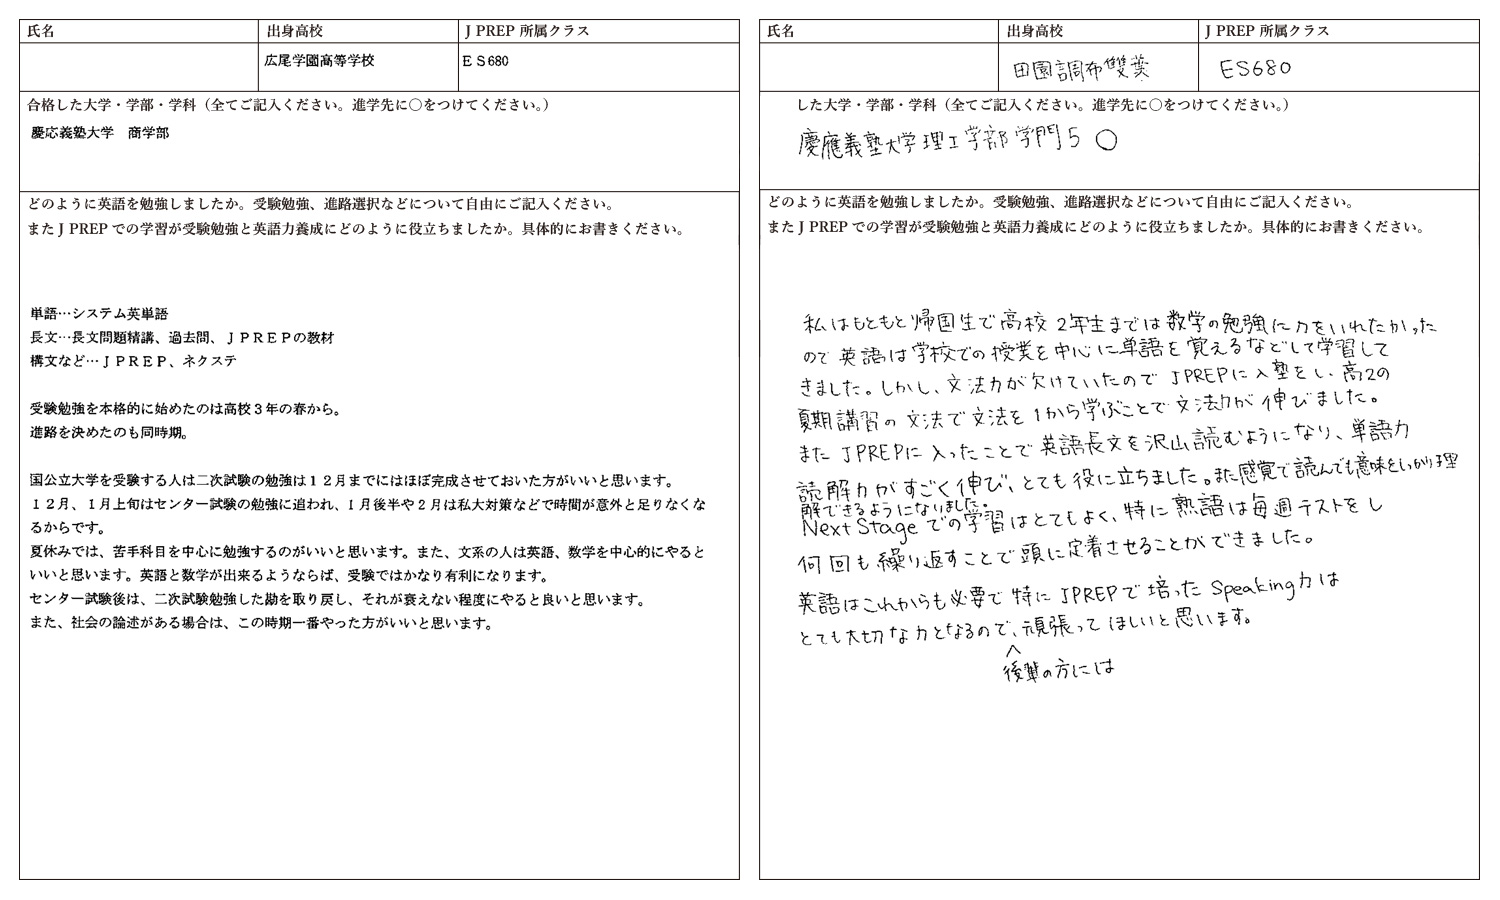 氏名
出身高校
J PREP 所属クラス
広尾学園高等学校
ＥＳ680
合格した大学・学部・学科（全てご記入ください。進学先に○をつけてください。）
慶応義塾大学　商学部
どのように英語を勉強しましたか。受験勉強、進路選択などについて自由にご記入ください。
また J PREP での学習が受験勉強と英語力養成にどのように役立ちましたか。具体的にお書きください。
単語…システム英単語
長文…長文問題精講、過去問、ＪＰＲＥＰの教材
構文など…ＪＰＲＥＰ、ネクステ
受験勉強を本格的に始めたのは高校３年の春から。
進路を決めたのも同時期。
国公立大学を受験する人は二次試験の勉強は１２月までにはほぼ完成させておいた方がいいと思います。
１２月、１月上旬はセンター試験の勉強に追われ、１月後半や２月は私大対策などで時間が意外と足りなくな
るからです。
夏休みでは、苦手科目を中心に勉強するのがいいと思います。また、文系の人は英語、数学を中心的にやると
いいと思います。英語と数学が出来るようならば、受験ではかなり有利になります。
センター試験後は、二次試験勉強した勘を取り戻し、それが衰えない程度にやると良いと思います。
また、社会の論述がある場合は、この時期一番やった方がいいと思います。
氏名
出身高校
J PREP 所属クラス
田園調布雙葉
ES680
した大学・学部・学科（全てご記入ください。進学先に○をつけてください。）
慶應義塾大学理工学部 学門5 ○
どのように英語を勉強しましたか。受験勉強、進路選択などについて自由にご記入ください。
また J PREP での学習が受験勉強と英語力養成にどのように役立ちましたか。具体的にお書きください。
私はもともと帰国生で高校2年生までは数学の勉強に力をいれたかった
ので英語は学校での授業を中心に単語を覚えるなどして学習して
きました。しかし、文法力が欠けていたのでJPREPに入塾をし、高2の
夏期講習の文法で文法を1から学ぶことで文法力が伸びました。
またJPREPに入ったことで英語長文を沢山読むようになり、単語力
読解力がすごく伸び、とても役に立ちました。また感覚で読んでも意味をしっかり理
解できるようになりました。
Next Stageでの学習はとてもよく、特に熟語は毎週テストをし
何回も繰り返すことで頭に定着させることができました。
英語はこれからも必要で特にJPREPで培ったSpeaking力は
とても大切な力となるので、頑張ってほしいと思います。
後輩の方には